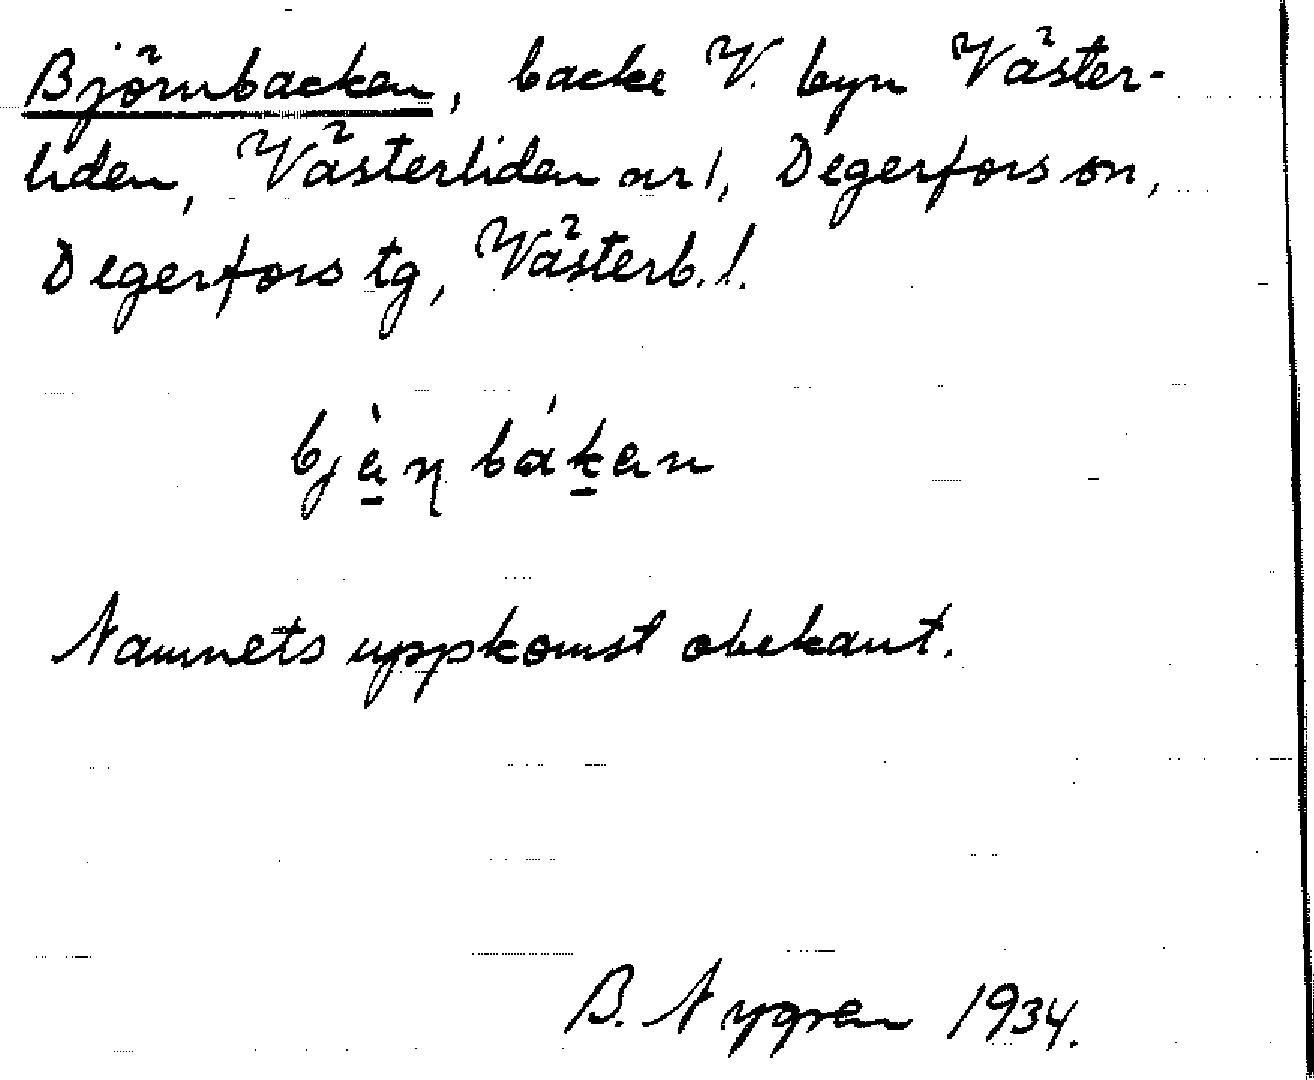 Björnbacken, backe V. byn Väster-
liden, Västerliden nr 1, Degerfors sn,
Degerfors tg, Västerb. l.
Namnets uppkomst obekant.
B. Nygren 1934.